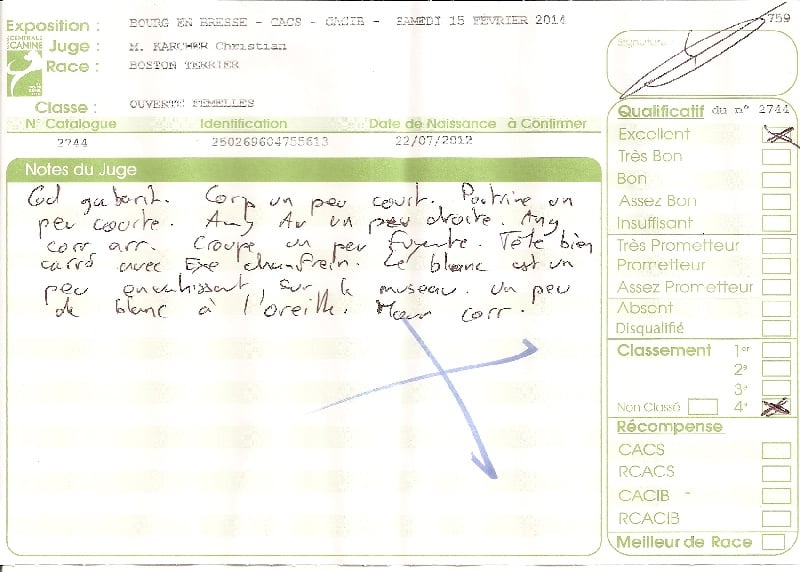 Exposition : BOURG EN BRESSE - CACS - CACIB - SAMEDI 15 FÉVRIER 2014
759
CENTRALE CANINE
Juge : M. KARCHER Christian
Signature
Race : BOSTON TERRIER
Classe : OUVERTE FEMELLES
N° Catalogue Identification Date de Naissance à Confirmer
2744 250269604755613 22/07/2012
Notes du Juge
gabarit. Corp un peu court. Poitrine un
peu courte. Ang Av un peu droite. Ang
corr arr. Croupe un peu Fuyente. Tête bien
carré avec Exe chanfrein. Le blanc est un
peu envahissant, sur le museau. un peu
de blanc à l'oreille. corr.
Qualificatif du n° 2744
Excellent
Très Bon
Bon
Assez Bon
Insuffisant
Très Prometteur
Prometteur
Assez Prometteur
Absent
Disqualifié
Classement 1er
2e
3e
Non Classé 4e
Récompense
CACS
RCACS
CACIB
RCACIB
Meilleur de Race